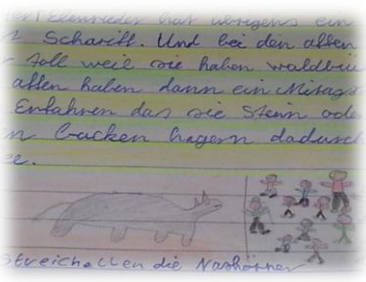 hat übrigens ein
Schariff. Und bei den affen
toll weil sie haben waldbrü
affen haben dann ein Mitags
Erfahren das sie Stein ode
n backen hagern dadurch
ee.
Streichallen die Nashörner